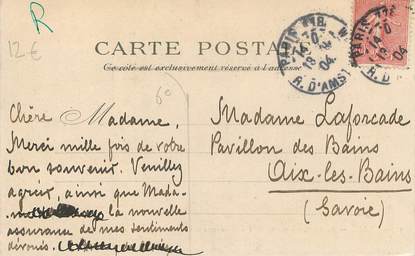 R
12 €
CARTE POSTA
Ce côté est exclusivement réservé à l'adresse
PARIS 118
18 04
R. D'AMST
60
Chère Madame,
Merci mille fois de votre
bon souvenir. Veuillez
agréer, ainsi que Mada-
me la nouvelle
assurance de mes sentiments
dévoués.
Madame Laforcade
Pavillon des Bains
Aix-les-Bains
(Savoie)